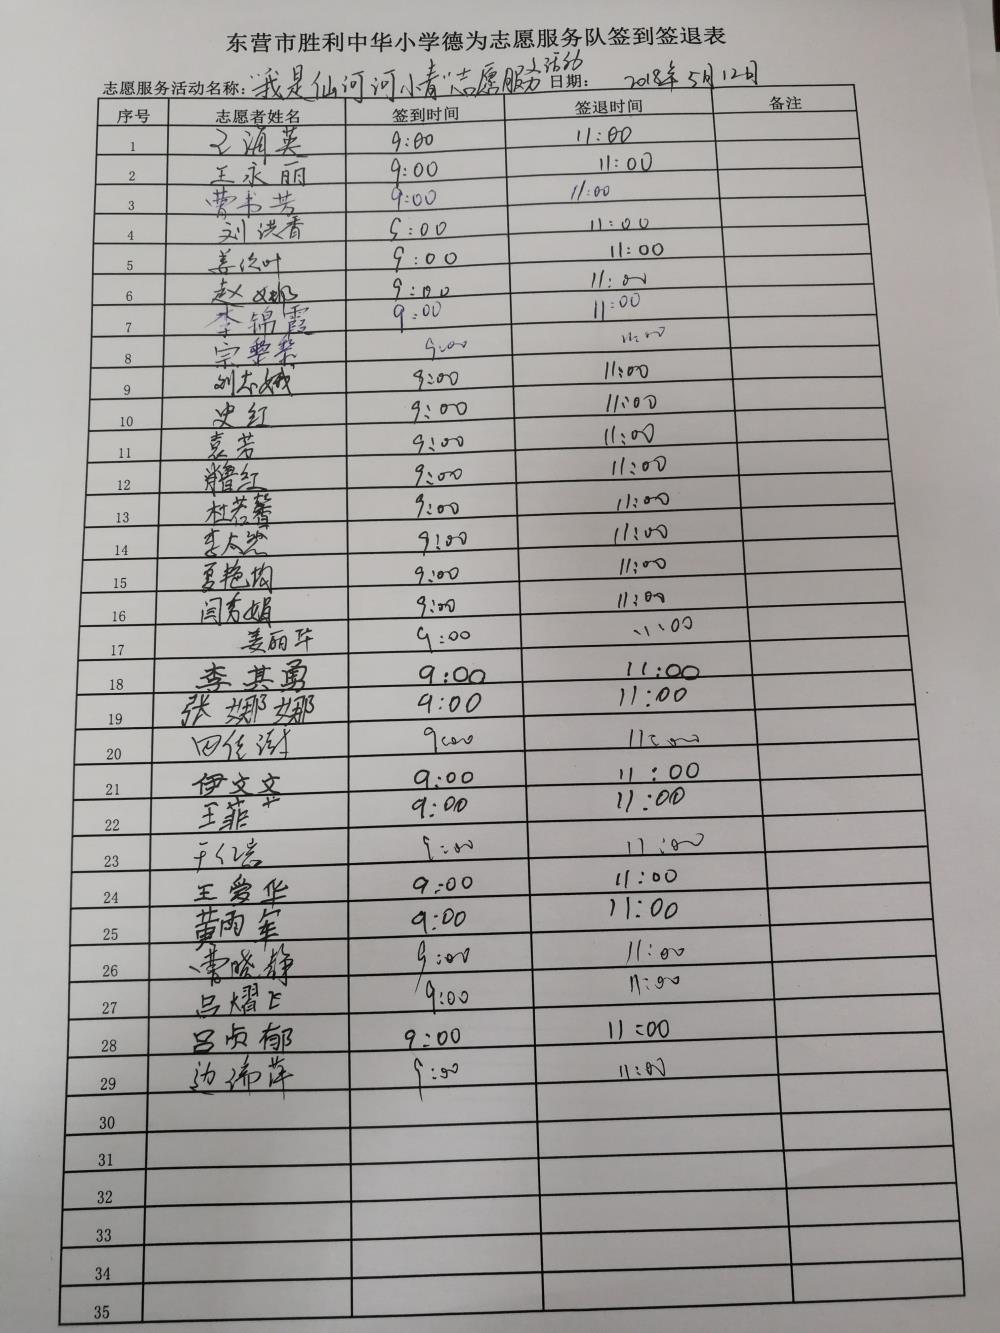 东营市胜利中华小学德为志愿服务队签到签退表
志愿服务活动名称："我是仙河河小青"志愿服务活动 日期： 2018年5月12日
序号 志愿者姓名 签到时间 签退时间 备注
1 王涌英 9:00 11:00
2 王永丽 9:00 11:00
3 曹书芳 9:00 11:00
4 刘洪香 9:00 11:00
5 9:00 11:00
6 赵娜 9:00 11:00
7 李锦霞 9:00 11:00
8 宗黎黎 9:00 11:00
9 刘志娥 9:00 11:00
10 史红 9:00 11:00
11 袁芳 9:00 11:00
12 红 9:00 11:00
13 杜若馨 9:00 11:00
14 9:00 11:00
15 夏艳 9:00 11:00
16 闫秀娟 9:00 11:00
17 姜丽华 9:00 11:00
18 李其勇 9:00 11:00
19 张娜娜 9:00 11:00
20 田 9:00 11:00
21 伊文文 9:00 11:00
22 王菲 9:00 11:00
23 9:00 11:00
24 王爱华 9:00 11:00
25 黄雨军 9:00 11:00
26 曹晓静 9:00 11:00
27 吕熠飞 9:00 11:00
28 吕贞郁 9:00 11:00
29 边瑞萍 9:00 11:00
30
31
32
33
34
35